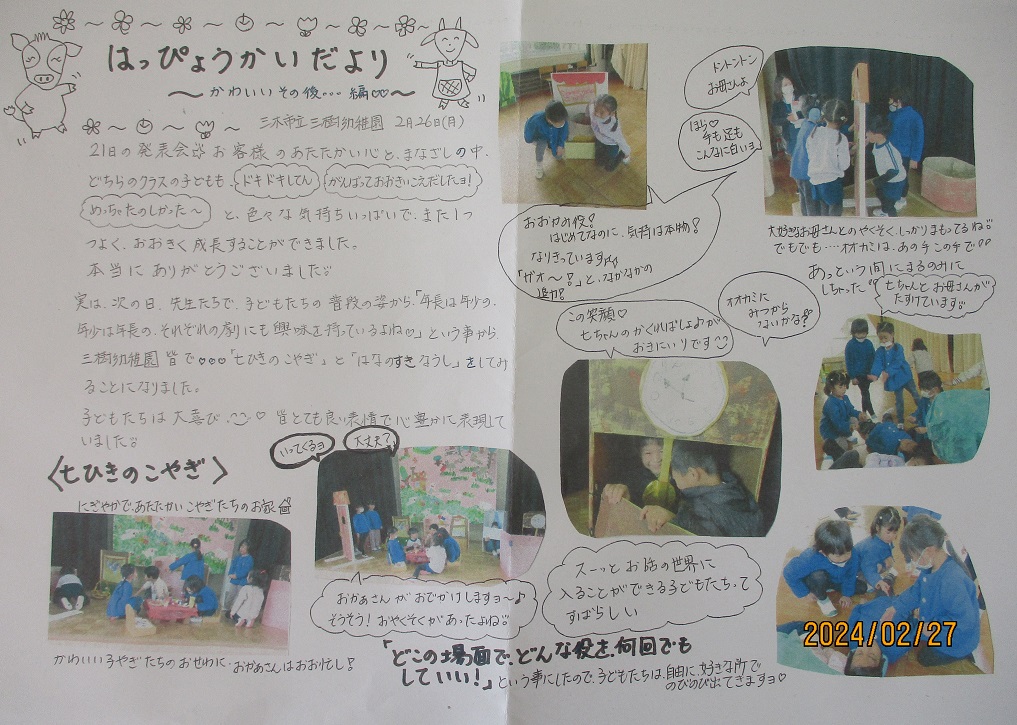 はっぴょうかいだより
～かわいいその後…編♡♡～
三木市立三樹幼稚園 2月26日(月)
21日の発表会 お客様のあたたかい心と、まなざしの中、
どちらのクラスの子どもも、ドキドキしてん がんばっておおきいこえだしたョ!
めっちゃたのしかった～ と、色々な気持ちいっぱいで、また1つ
つよく、おおきく成長することができました。
本当にありがとうございました
実は、次の日、先生たちで、子どもたちの普段の姿から、「年長は年少の、
年少は年長の、それぞれの劇にも興味を持っているよね♡」という事から
三樹幼稚園皆で♡♡♡「七ひきのこやぎ」と「はなのすきなうし」をしてみ
ることになりました。
子どもたちは大喜び ♡ 皆とても良い表情で心豊かに表現して
いました
〈七ひきのこやぎ〉
にぎやかで、あたたかいこやぎたちのお家
かわいい子やぎたちのおせわに、おかあさんはおお忙し!
いってくるョ
大丈夫?
おかあさんがおでかけしますョ～♪
そうそう!おやくそくがあったよね
「どこの場面で、どんな役を、何回でも
していい!」という事にしたので、子どもたちは、自由に、好きな所で
のびのび出てきますョ♡
ドントンドン
お母さんよ
ほら♡
手も足も
こんなに白いョ
おおかみ役!
はじめてなのに、気持は本物!
なりきっています
「ガオ～!」と、なかなかの
迫力!
大好きなお母さんとのやくそく、しっかりまもってるね
でもでも……オオカミは、あの手この手で
あっという間にまるのみに
しちゃった
七ちゃんとお母さんが
たすけています
この笑顔♡
七ちゃんのかくればしょが
おきにいりです
オオカミに
みつから
ないかな?
スーッとお話の世界に
入ることができる子どもたちって
すばらしい
2024/02/27